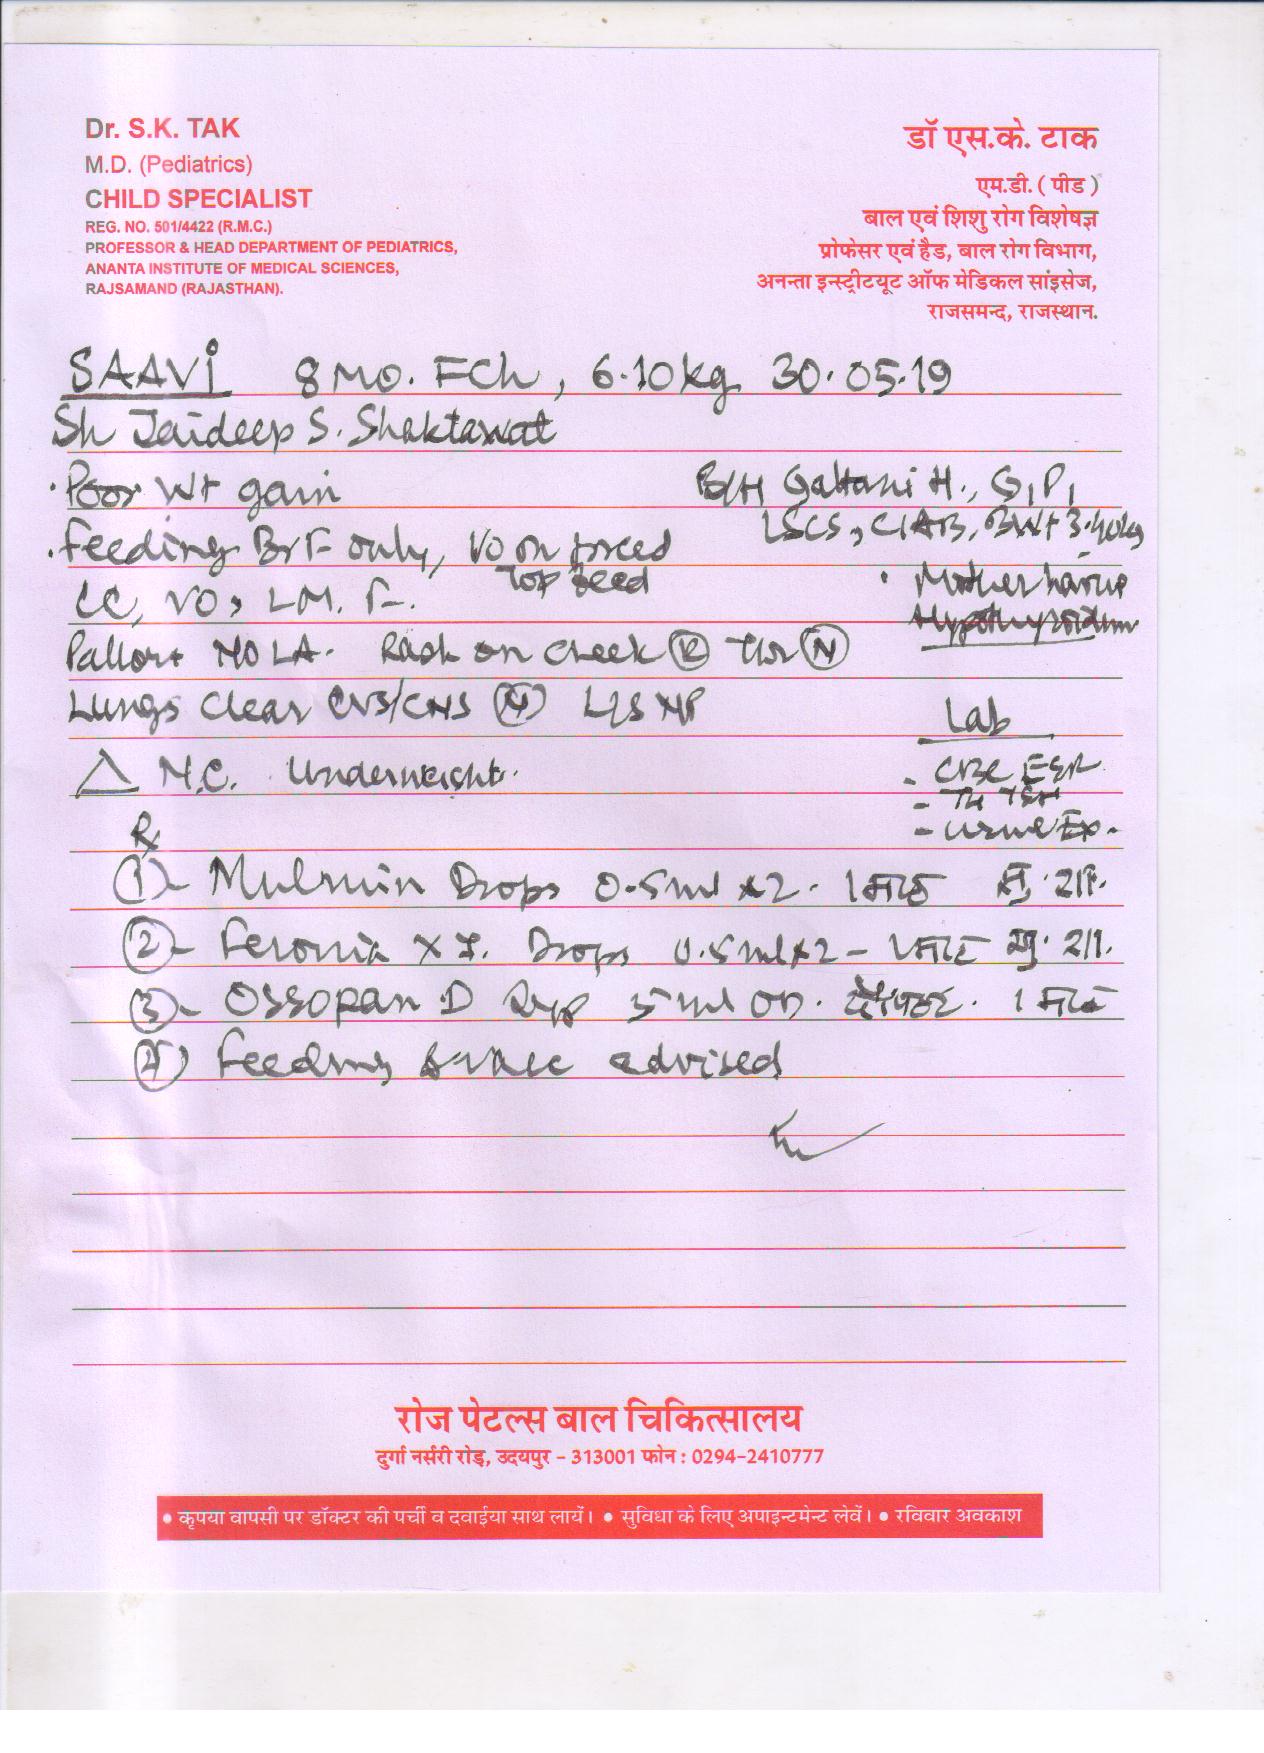 Dr. S.K. TAK
M.D. (Pediatrics)
CHILD SPECIALIST
REG. NO. 501/4422 (R.M.C.)
PROFESSOR & HEAD DEPARTMENT OF PEDIATRICS,
ANANTA INSTITUTE OF MEDICAL SCIENCES,
RAJSAMAND (RAJASTHAN).
डॉ एस.के. टाक
एम.डी. ( पीड )
बाल एवं शिशु रोग विशेषज्ञ
प्रोफेसर एवं हैड, बाल रोग विभाग,
अनन्ता इन्स्ट्रीटयूट ऑफ मेडिकल सांइसेज,
राजसमन्द, राजस्थान.
SAAVi 8 MO. FCh, 6.10kg 30.05.19
Sh Jaideep S. Shaktawat
Poor Wt gain
Feeding BrF only, VO on forced
Top feed
CC, VO, LM. F.
Pallor+ NO LA. Rash on cheek (R) (N)
Lungs Clear CVS/CNS (N) L/S NP
B/H H., G1P1
LSCS, CIAB, BWt 3.40kg
Mother having
Hypothyroidism
Lab
- CBC ESR
- T4 TSH
- Urine Ex.
△ N.C. Underweight.
Rx
(1)- Mulmin Drops 0.5ml x2. 1 माह
(2)- Feronia XT. Drops 0.5ml x2 - 1 माह
(3)- Ossopan D Syp 5ml OD. दोपहर. 1 माह
(4) Feeding advised
रोज पेटल्स बाल चिकित्सालय
दुर्गा नर्सरी रोड़, उदयपुर - 313001 फोन : 0294-2410777
• कृपया वापसी पर डॉक्टर की पर्ची व दवाईया साथ लायें। • सुविधा के लिए अपाइन्टमेन्ट लेवें। • रविवार अवकाश